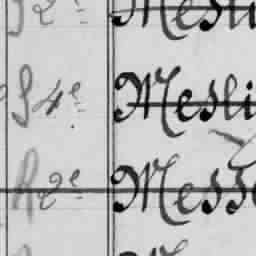 2e Mesli
S 4e Mesli
R 2e Messe